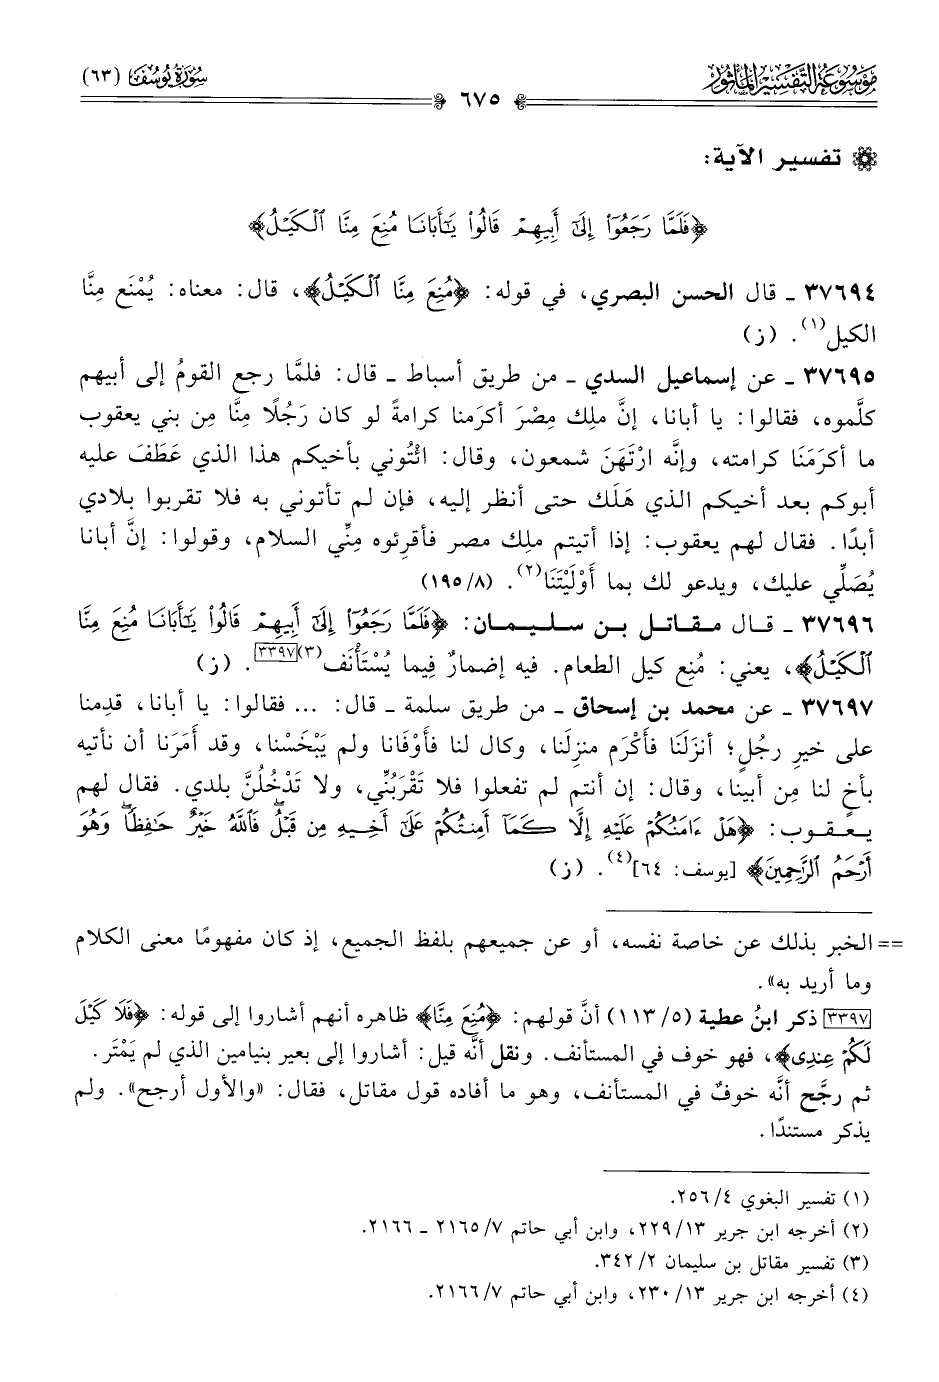 مَوْسُوعَةُ التَّفْسِيرِ المَأْثُورِ
سُورَةُ يُوسُفَ (٦٣)
٦٧٥
تفسير الآية:
﴿فَلَمَّا رَجَعُوٓا۟ إِلَىٰٓ أَبِيهِمْ قَالُوا۟ يَٰٓأَبَانَا مُنِعَ مِنَّا ٱلْكَيْلُ﴾
٣٧٦٩٤ ـ قال الحسن البصري، في قوله: ﴿مُنِعَ مِنَّا ٱلْكَيْلُ﴾، قال: معناه: يُمْنَع مِنَّا
الكيل(١). (ز)
٣٧٦٩٥ ـ عن إسماعيل السدي ـ من طريق أسباط ـ قال: فلمَّا رجع القومُ إلى أبيهم
كلَّموه، فقالوا: يا أبانا، إنَّ ملِك مِصْرَ أكرَمنا كرامةً لو كان رَجُلًا مِنَّا مِن بني يعقوب
ما أكرَمَنا كرامته، وإنَّه ارْتَهَنَ شمعون، وقال: ائْتُوني بأخيكم هذا الذي عَطَفَ عليه
أبوكم بعد أخيكم الذي هَلَك حتى أنظر إليه، فإن لم تأتوني به فلا تقربوا بلادي
أبدًا. فقال لهم يعقوب: إذا أتيتم ملِك مصر فأقرِئوه مِنِّي السلام، وقولوا: إنَّ أبانا
يُصَلِّي عليك، ويدعو لك بما أَوْلَيْتَنَا(٢). (١٩٥/٨)
٣٧٦٩٦ ـ قال مقاتل بن سليمان: ﴿فَلَمَّا رَجَعُوٓا۟ إِلَىٰٓ أَبِيهِمْ قَالُوا۟ يَٰٓأَبَانَا مُنِعَ مِنَّا
ٱلْكَيْلُ﴾، يعني: مُنِع كيل الطعام. فيه إضمارٌ فِيما يُسْتَأْنَف(٣)[٣٣٩٧]. (ز)
٣٧٦٩٧ ـ عن محمد بن إسحاق ـ من طريق سلمة ـ قال: ... فقالوا: يا أبانا، قدِمنا
على خيرِ رجُلٍ؛ أنزَلَنَا فأَكْرَم منزِلَنا، وكال لنا فأَوْفَانا ولم يَبْخَسْنا، وقد أمَرَنا أن نأتيه
بأخٍ لنا مِن أبينا، وقال: إن أنتم لم تفعلوا فلا تَقْرَبُنِّي، ولا تَدْخُلُنَّ بلدي. فقال لهم
يعقوب: ﴿هَلْ ءَامَنُكُمْ عَلَيْهِ إِلَّا كَمَآ أَمِنتُكُمْ عَلَىٰٓ أَخِيهِ مِن قَبْلُ ۖ فَٱللَّهُ خَيْرٌ حَٰفِظًا ۖ وَهُوَ
أَرْحَمُ ٱلرَّٰحِمِينَ﴾ [يوسف: ٦٤](٤). (ز)
== الخبر بذلك عن خاصة نفسه، أو عن جميعهم بلفظ الجميع، إذ كان مفهومًا معنى الكلام
وما أريد به».
[٣٣٩٧] ذكر ابنُ عطية (١١٣/٥) أنَّ قولهم: ﴿مُنِعَ مِنَّا﴾ ظاهره أنهم أشاروا إلى قوله: ﴿فَلَا كَيْلَ
لَكُمْ عِندِى﴾، فهو خوف في المستأنف. ونقل أنَّه قيل: أشاروا إلى بعير بنيامين الذي لم يَمْتَر.
ثم رجَّح أنَّه خوفٌ في المستأنف، وهو ما أفاده قول مقاتل، فقال: «والأول أرجح». ولم
يذكر مستندًا.
(١) تفسير البغوي ٢٥٦/٤.
(٢) أخرجه ابن جرير ٢٢٩/١٣، وابن أبي حاتم ٢١٦٥/٧ ـ ٢١٦٦.
(٣) تفسير مقاتل بن سليمان ٣٤٢/٢.
(٤) أخرجه ابن جرير ٢٣٠/١٣، وابن أبي حاتم ٢١٦٦/٧.